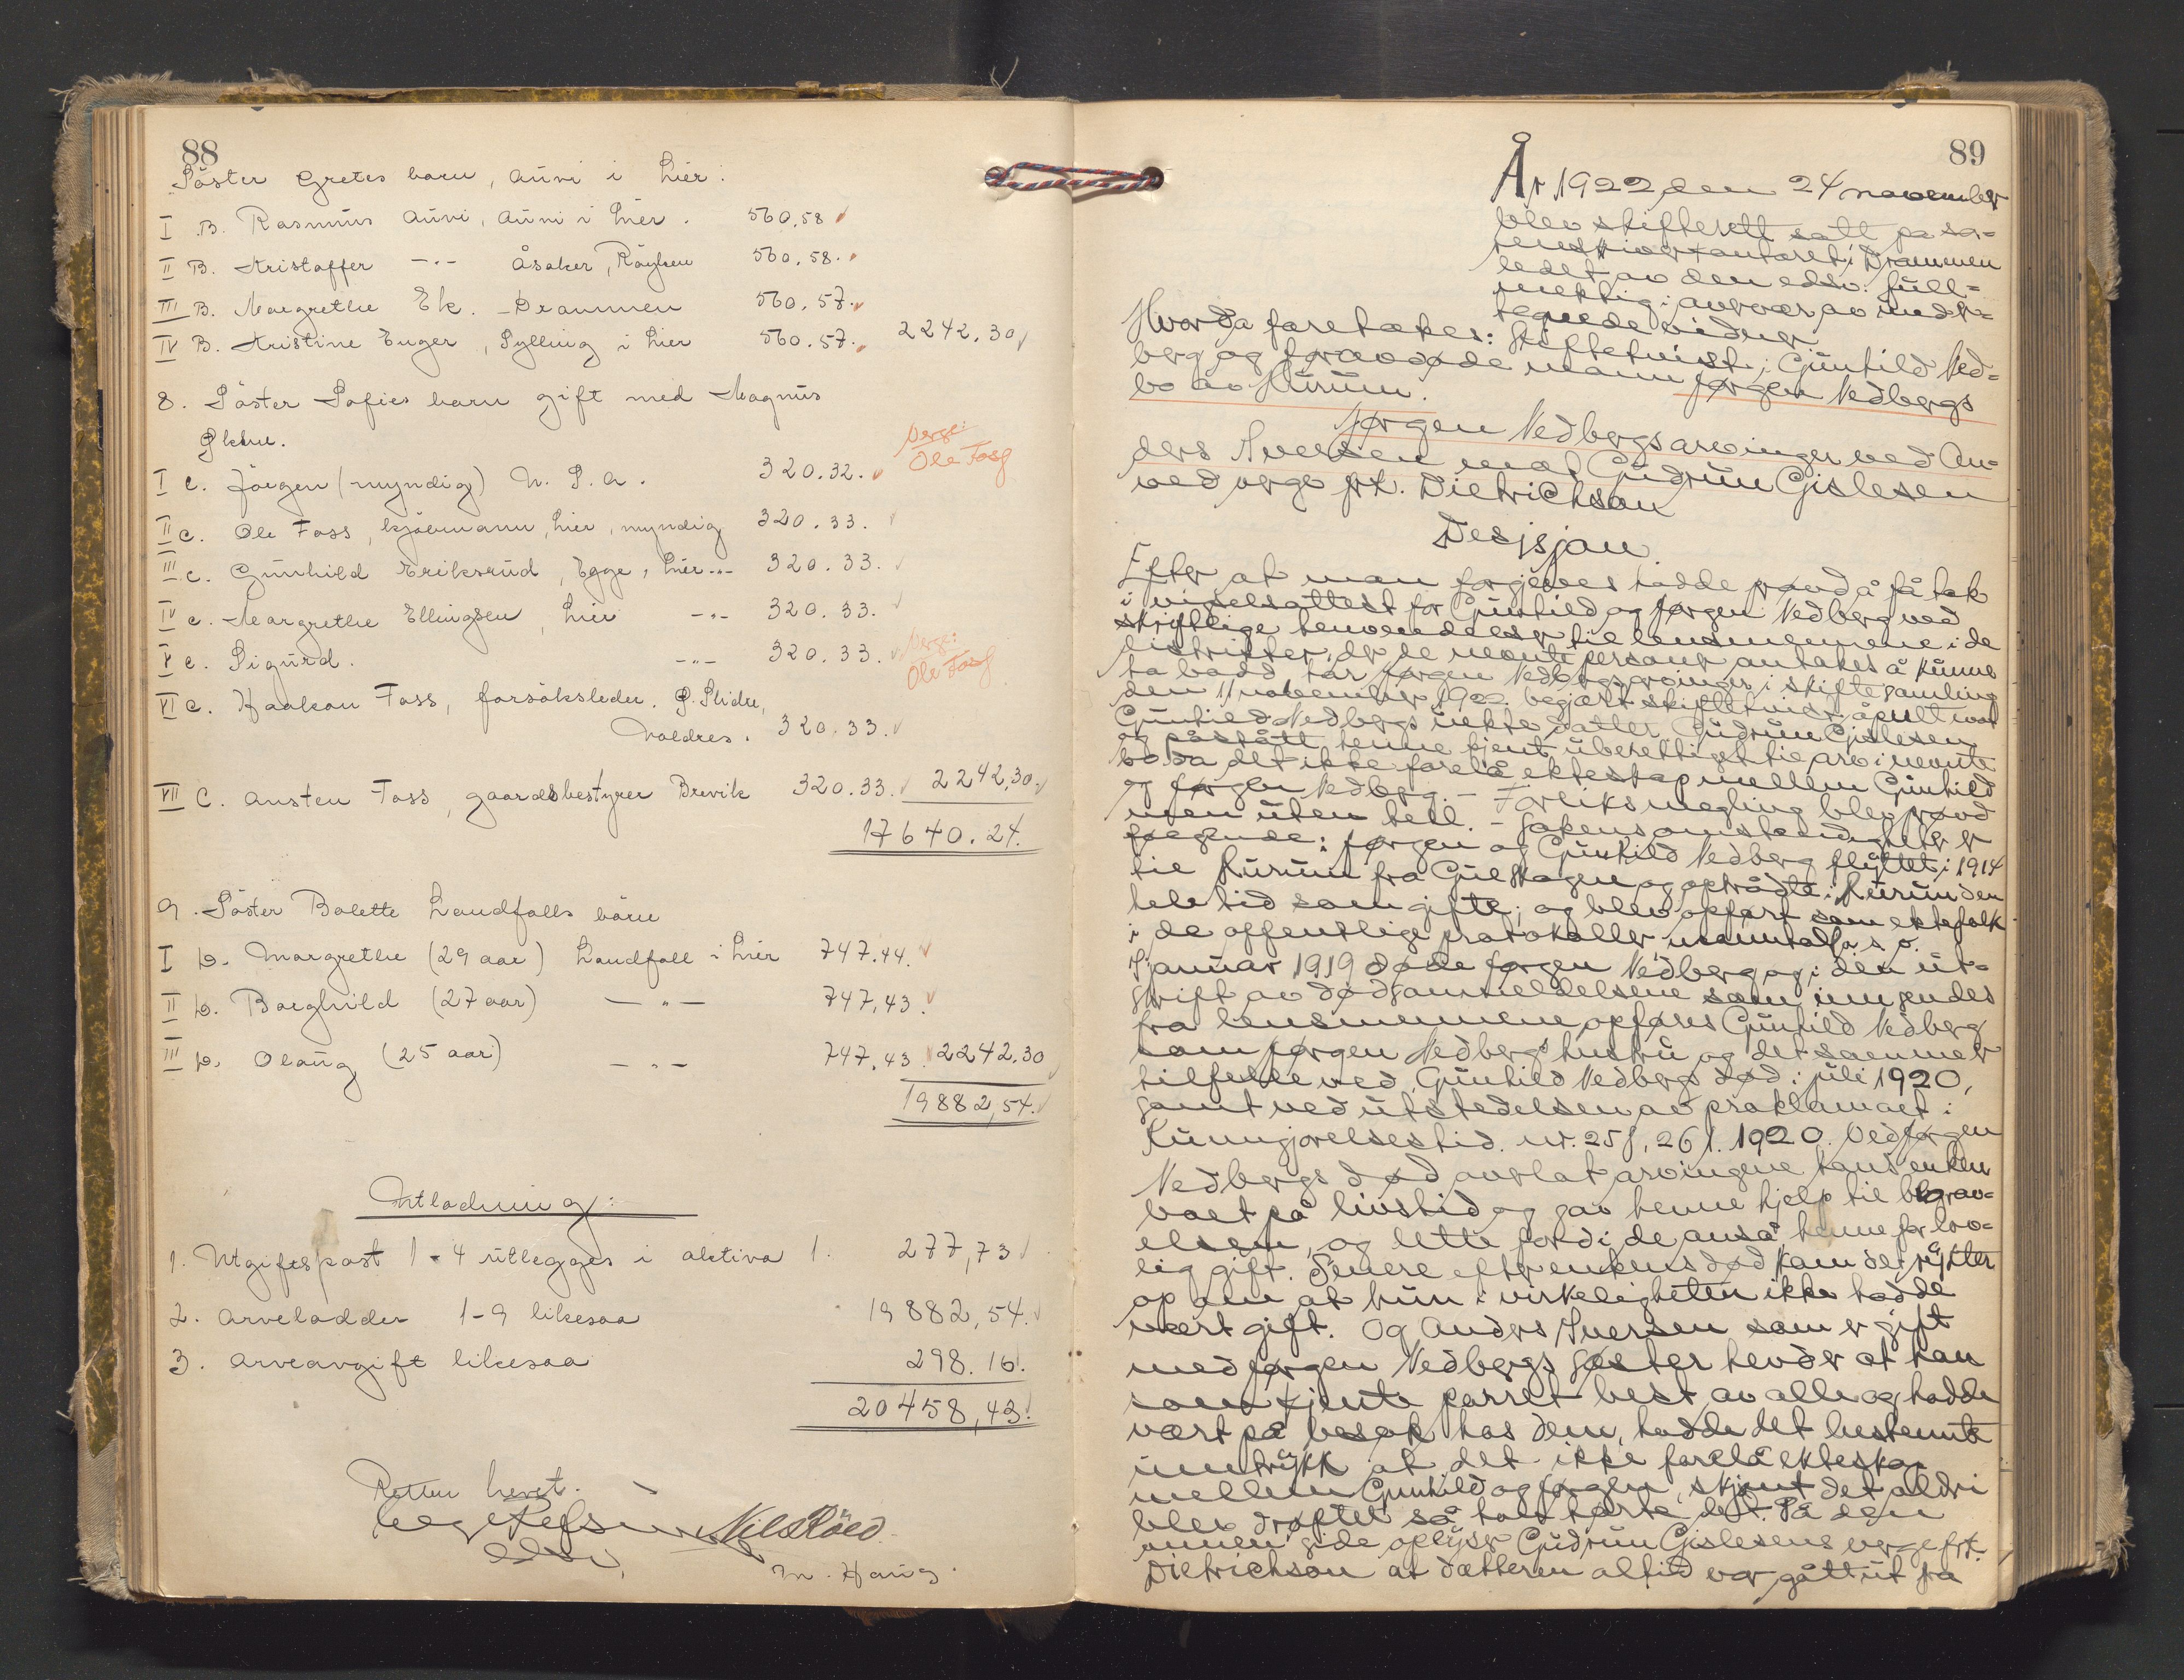 88
Söster Gretes barn, Auvi i Lier:
I B. Rasmus Auvi, Auvi i Lier. 560,58
II B. Kristoffer -"- Åsaker, Röyken 560.58.
III B. Margrethe Ek. - Drammen 560.57.
IV B. Kristine Enger, Sylling i Lier 560.57. 2242.30
8. Söster Sofies barn gift med Magnus
I C. Jörgen (myndig) U. S. A. 320.32. Verge: Ole Foss
II C. Ole Foss, kjöbmann, Lier, myndig 320.33.
III C. Gunhild Eriksrud, Egge, Lier -"- 320.33.
IV C. Margrethe Ellingsen, Lier -"- 320.33.
V C. Sigurd. -"- 320.33. Verge: Ole Foss
VI C. Haakon Foss, forsöksleder. Ö. Slidre,
Valdres. 320.33.
VII C. Austen Foss, gaardsbestyrer Brevik 320.33. 2242,30.
17640.24.
9. Söster Bolette Landfalls börn
I D. Margrethe (29 aar) Landfall i Lier 747.44.
II D. Borghild (27 aar) -"- 747,43.
III D. Olaug (25 aar) -"- 747.43 2242.30
19882,54.
Utlodning:
1. Utgiftspost 1-4 utlegges i aktiva 1. 277,73
2. Arvelodder 1-9 likesaa 19882,54.
3. Arveavgift likesaa 298.16.
20458,43.
Retten hevet.
Nils Röed.
M. Haug.
89
År 1922 den 24 november
blev skifterett satt på so-
renskriverkontoret i Drammen
ledet av den edsv. full-
mektig i nærvær av undert-
egnede vidner
Hvorda foretakes: Skiftetvist i Gunhild Ved-
berg og foravdøde mann Jørgen Vedbergs
bo av Hurum.
Jørgen Vedbergs arvinger ved An-
ders Iversen mot Gudrun Gislesen
ved verge frk. Dietrichson
Desisjon.
Efter at man forgjeves hadde prøvd å få tak
i vigselsattest for Gunhild og Jørgen Vedberg ved
skriftlige henvendelser til lensmennene i de
distrikter, der de nevnte personer antakes å kunne
ha bodd har Jørgen Vedbergs arvinger i skiftesamling
den 11 november 1922 begjært skiftetvist åpnet mot
Gunhild Vedbergs uekte datter Gudrun Gislesen
og påstått henne kjent uberettiget til arv i nevnte
bo da det ikke forelå ekteskap mellem Gunhild
og Jørgen Vedberg. - Forliksmegling blev prøvd
men uten hell. - Sakens omstendigheter er
følgende: Jørgen og Gunhild Vedberg flyttet i 1914
til Hurum fra Gulskogen og optrådte i Hurum den
hele tid som gifte; og blev opført som ektefolk
i de offentlige protokoller manntall o. s. v.
I januar 1919 døde Jørgen Vedberg og i den ut-
skrift av dødsanmeldelsene som innsendes
fra lensmennene opføres Gunhild Vedberg
som Jørgen Vedbergs hustru og det samme er
tilfelle ved Gunhild Vedbergs død i juli 1920,
samt ved utstedelsen av proklamaet i
Kunngjørelsestid. nr. 258, 261. 1920. Ved Jørgen
Vedbergs død overlat arvingene hans enken
boet på livstid og gav henne hjelp til begrav-
elsen, og dette fordi de anså henne for lov-
lig gift. Senere efter enkens død kom det rykter
op om at hun i virkeligheten ikke hadde
vært gift. Og Anders Iversen som er gift
med Jørgen Vedbergs søster hevder at han
som kjente parret best av alle og hadde
vært på besøk hos dem, hadde det bestemte
inntrykk at det ikke forelå ekteskap
mellem Gunhild og Jørgen, skjønt det aldri
blev drøftet så han hørte det. På den
annen side oplyser Gudrun Gislesens verge frk.
Dietrichson at datteren altid var gått ut fra